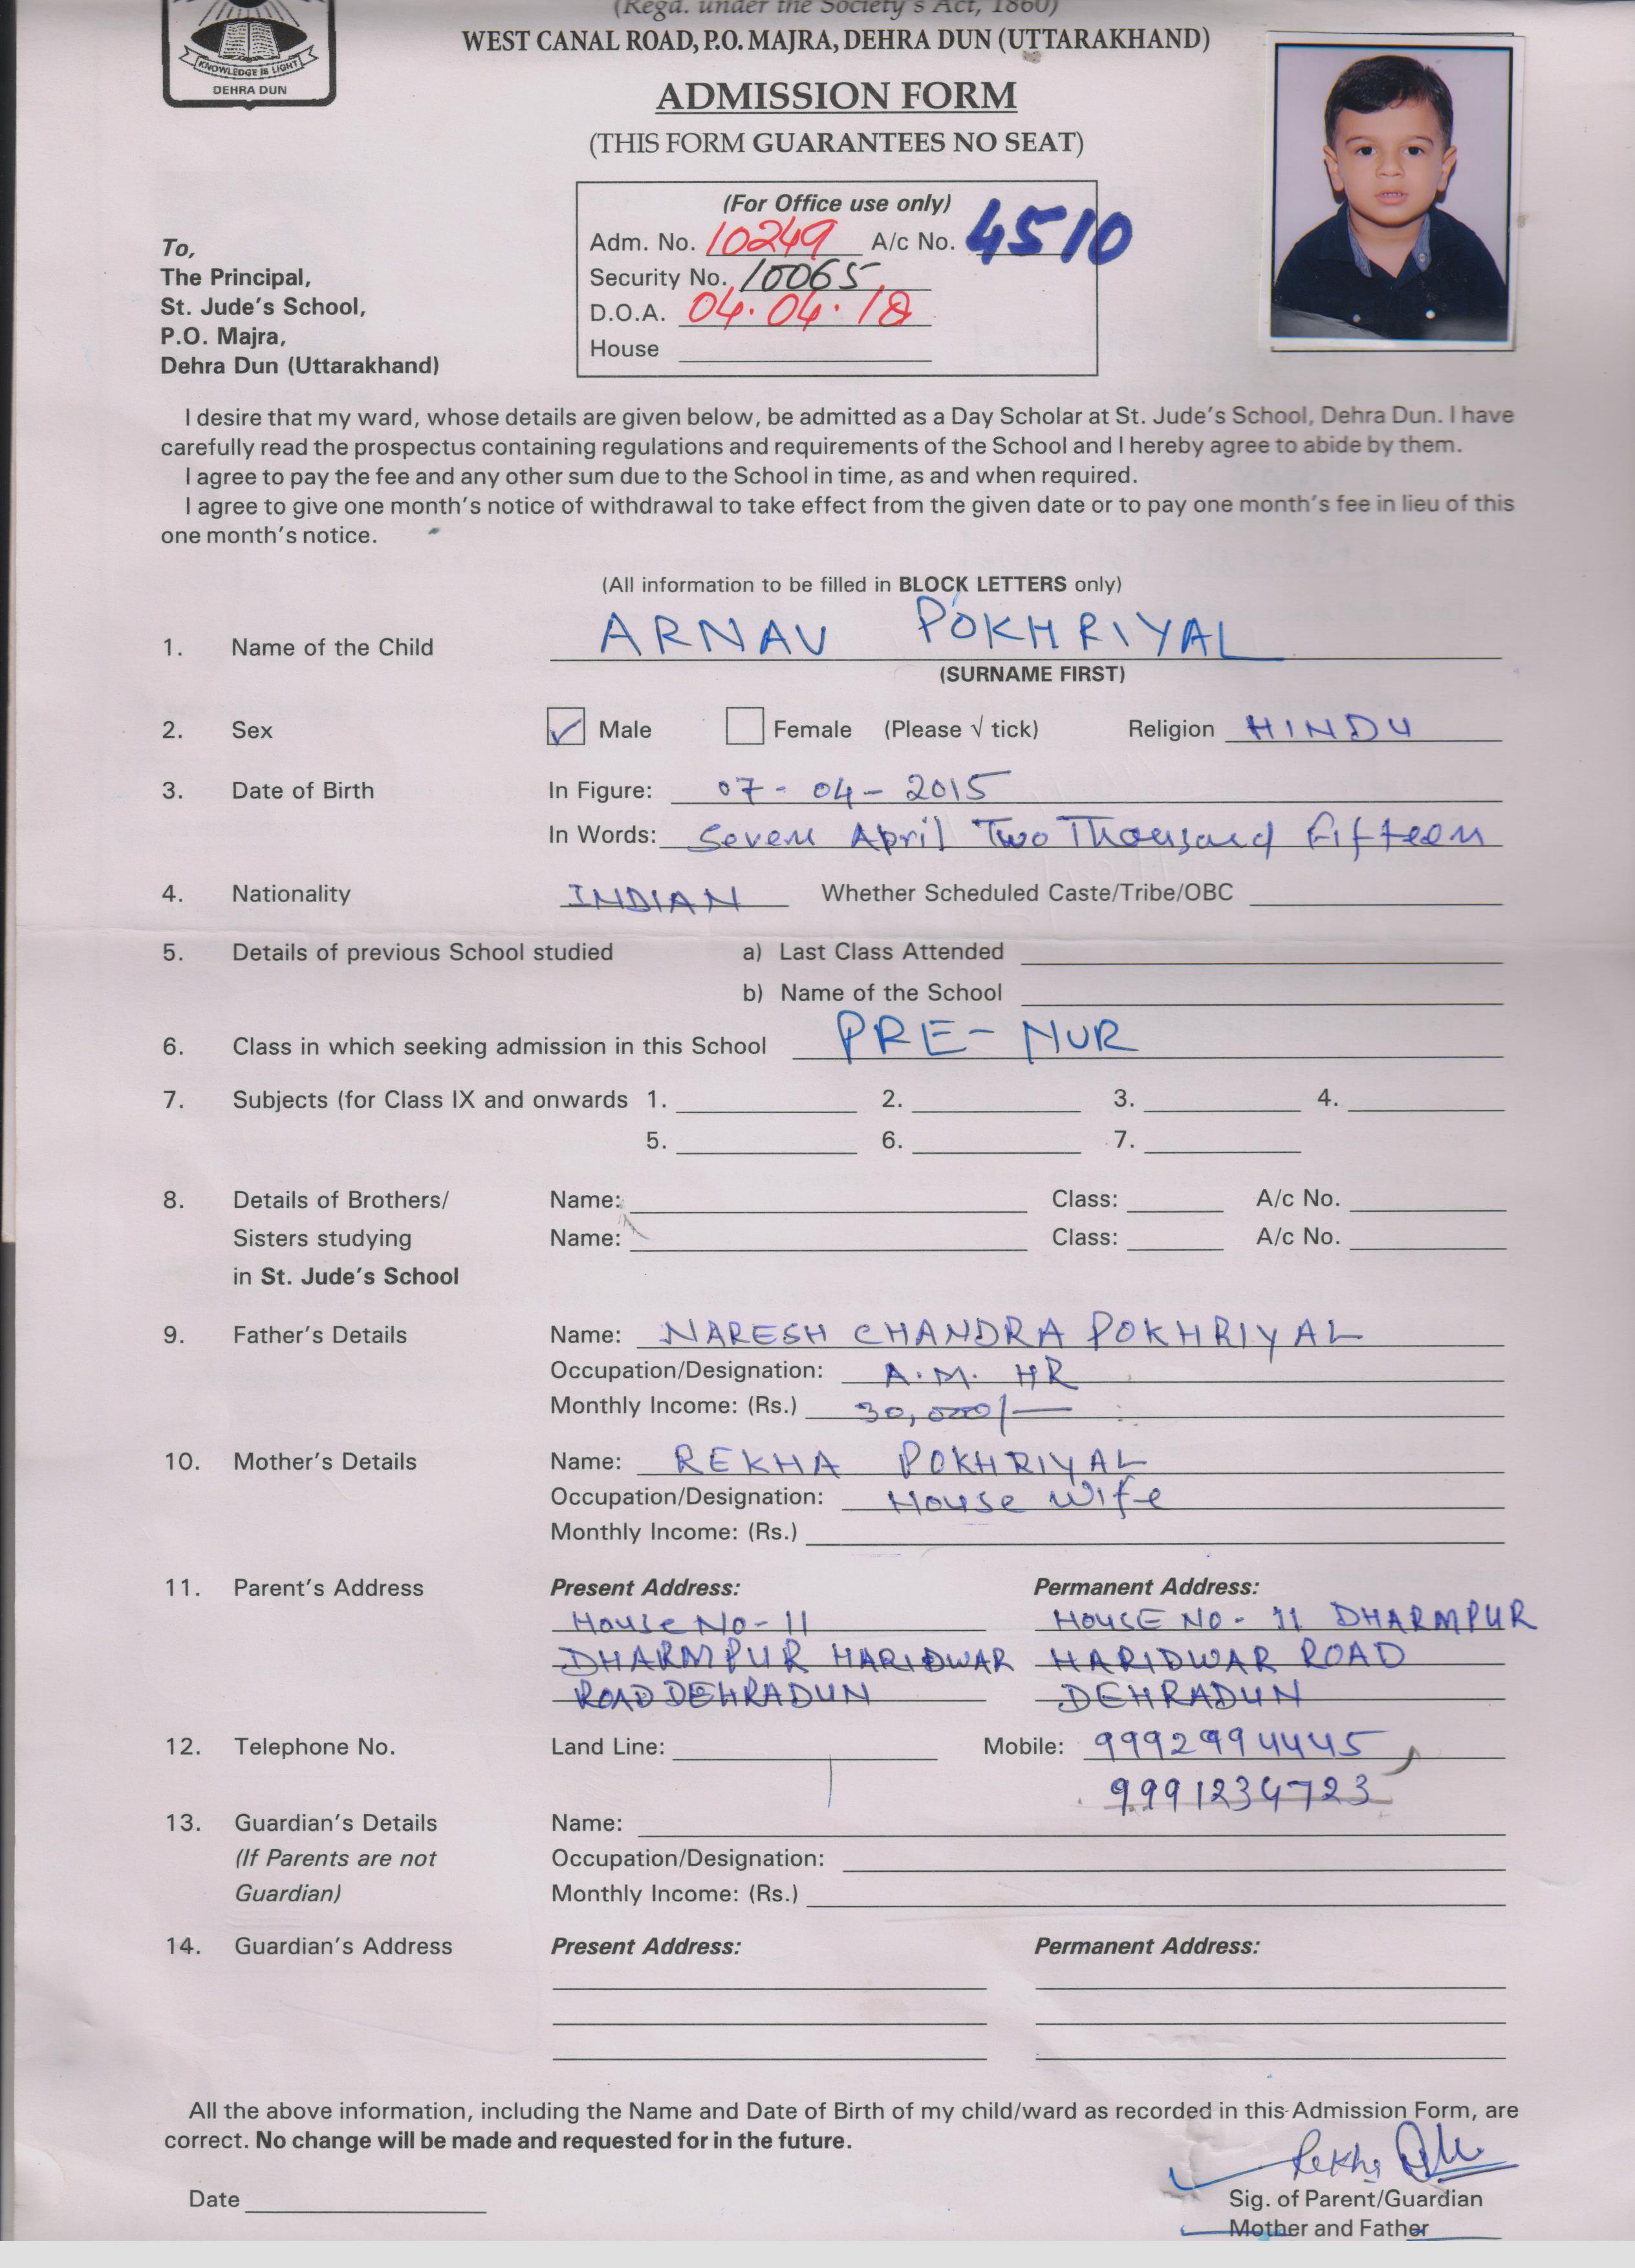 (Regd. under the Society's Act, 1860)
WEST CANAL ROAD, P.O. MAJRA, DEHRA DUN (UTTARAKHAND)
KNOWLEDGE IS LIGHT
DEHRA DUN
ADMISSION FORM
(THIS FORM GUARANTEES NO SEAT)
(For Office use only)
Adm. No. 10249 A/c No. 4510
Security No. 10065
D.O.A. 04.04.18
House
To,
The Principal,
St. Jude's School,
P.O. Majra,
Dehra Dun (Uttarakhand)
I desire that my ward, whose details are given below, be admitted as a Day Scholar at St. Jude's School, Dehra Dun. I have
carefully read the prospectus containing regulations and requirements of the School and I hereby agree to abide by them.
I agree to pay the fee and any other sum due to the School in time, as and when required.
I agree to give one month's notice of withdrawal to take effect from the given date or to pay one month's fee in lieu of this
one month's notice.
(All information to be filled in BLOCK LETTERS only)
1. Name of the Child ARNAV POKHRIYAL
(SURNAME FIRST)
2. Sex Male Female (Please √ tick) Religion HINDU
3. Date of Birth In Figure: 07-04-2015
In Words: Seven April Two Thousand Fifteen
4. Nationality INDIAN Whether Scheduled Caste/Tribe/OBC
5. Details of previous School studied a) Last Class Attended
b) Name of the School
6. Class in which seeking admission in this School PRE-NUR
7. Subjects (for Class IX and onwards 1. 2. 3. 4.
5. 6. 7.
8. Details of Brothers/ Name: Class: A/c No.
Sisters studying Name: Class: A/c No.
in St. Jude's School
9. Father's Details Name: NARESH CHANDRA POKHRIYAL
Occupation/Designation: A.M. HR
Monthly Income: (Rs.) 30,000/-
10. Mother's Details Name: REKHA POKHRIYAL
Occupation/Designation: House Wife
Monthly Income: (Rs.)
11. Parent's Address Present Address: Permanent Address:
House No-11 HOUSE NO- 11 DHARMPUR
DHARMPUR HARIDWAR HARIDWAR ROAD
ROAD DEHRADUN DEHRADUN
12. Telephone No. Land Line: Mobile: 9992994445,
9991234723
13. Guardian's Details Name:
(If Parents are not Occupation/Designation:
Guardian) Monthly Income: (Rs.)
14. Guardian's Address Present Address: Permanent Address:
All the above information, including the Name and Date of Birth of my child/ward as recorded in this Admission Form, are
correct. No change will be made and requested for in the future.
Rekha
Date Sig. of Parent/Guardian
Mother and Father